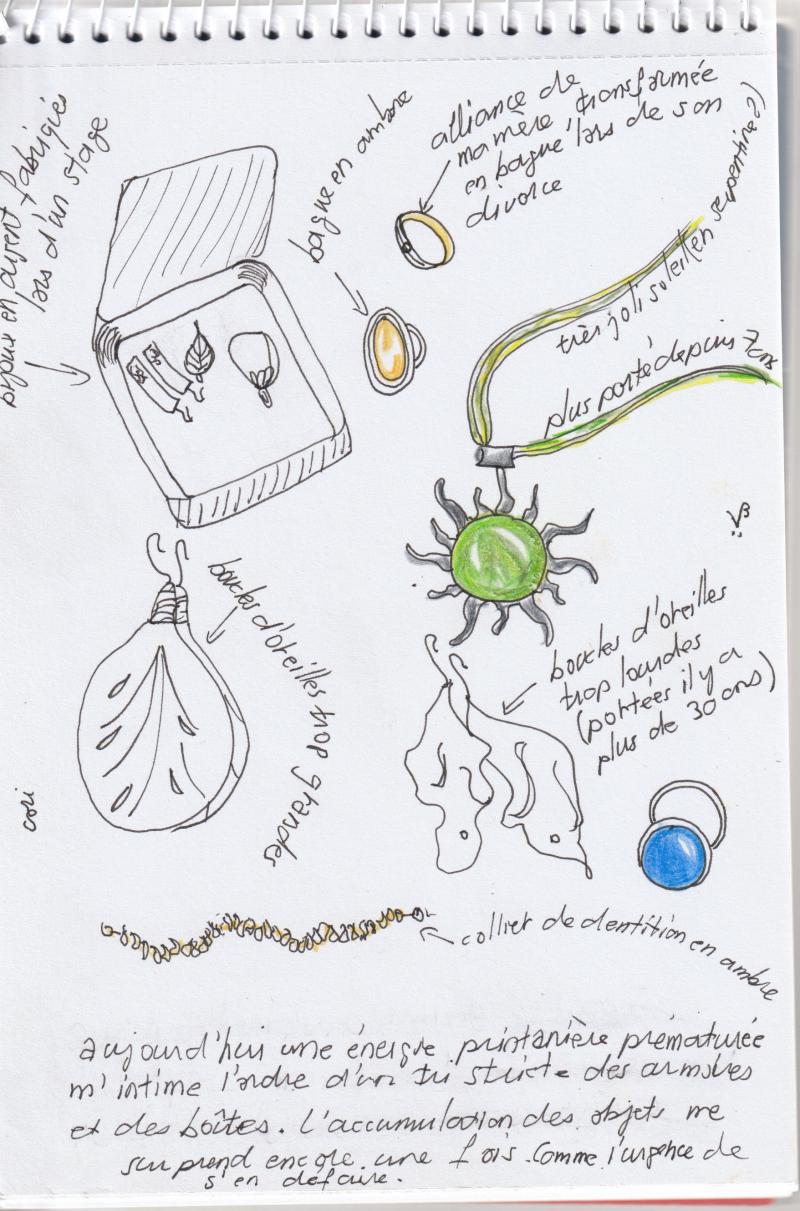 bijoux en argent fabriqués
lors d'un stage
bague en ambre
alliance de
ma mère transformée
en bague lors de son
divorce
très joli soleil (en serpentine?)
plus porté depuis 7 ans
boucles d'oreilles trop grandes
boucles d'oreilles
trop lourdes
(portées il y a
plus de 30 ans)
cori
collier de dentition en ambre
aujourd'hui une énergie printanière prématurée
m'intime l'ordre d'un tri strict des armoires
et des boîtes. L'accumulation des objets me
surprend encore une fois. Comme l'urgence de
s'en défaire.